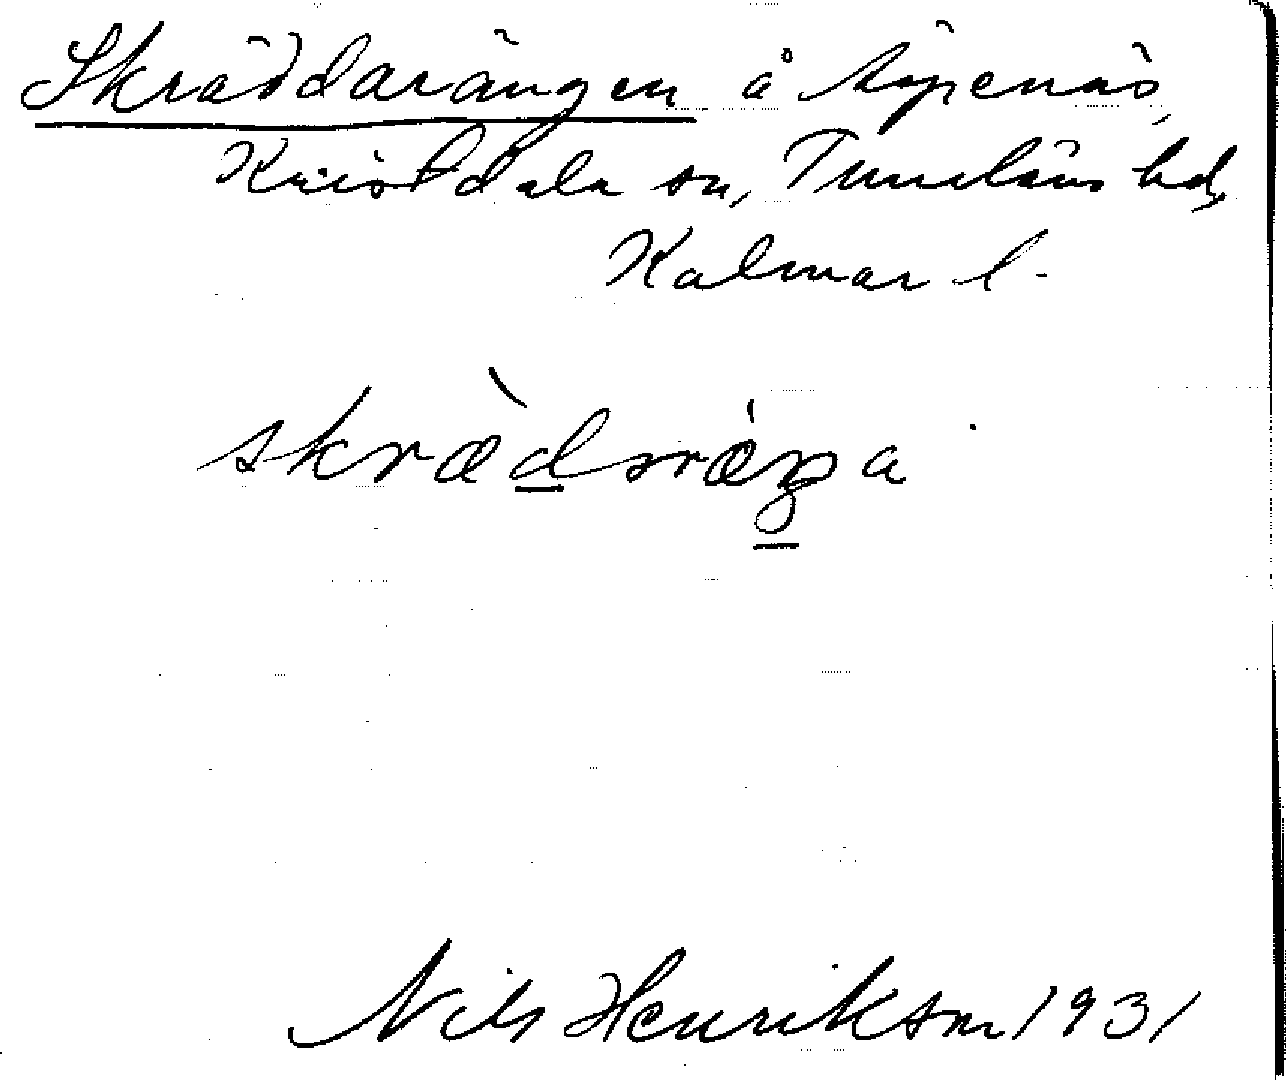 Skräddarängen å Äpenäs,
Kristdala sn, Tunaläns hd,
Kalmar l.
Nils Henrikson 1931